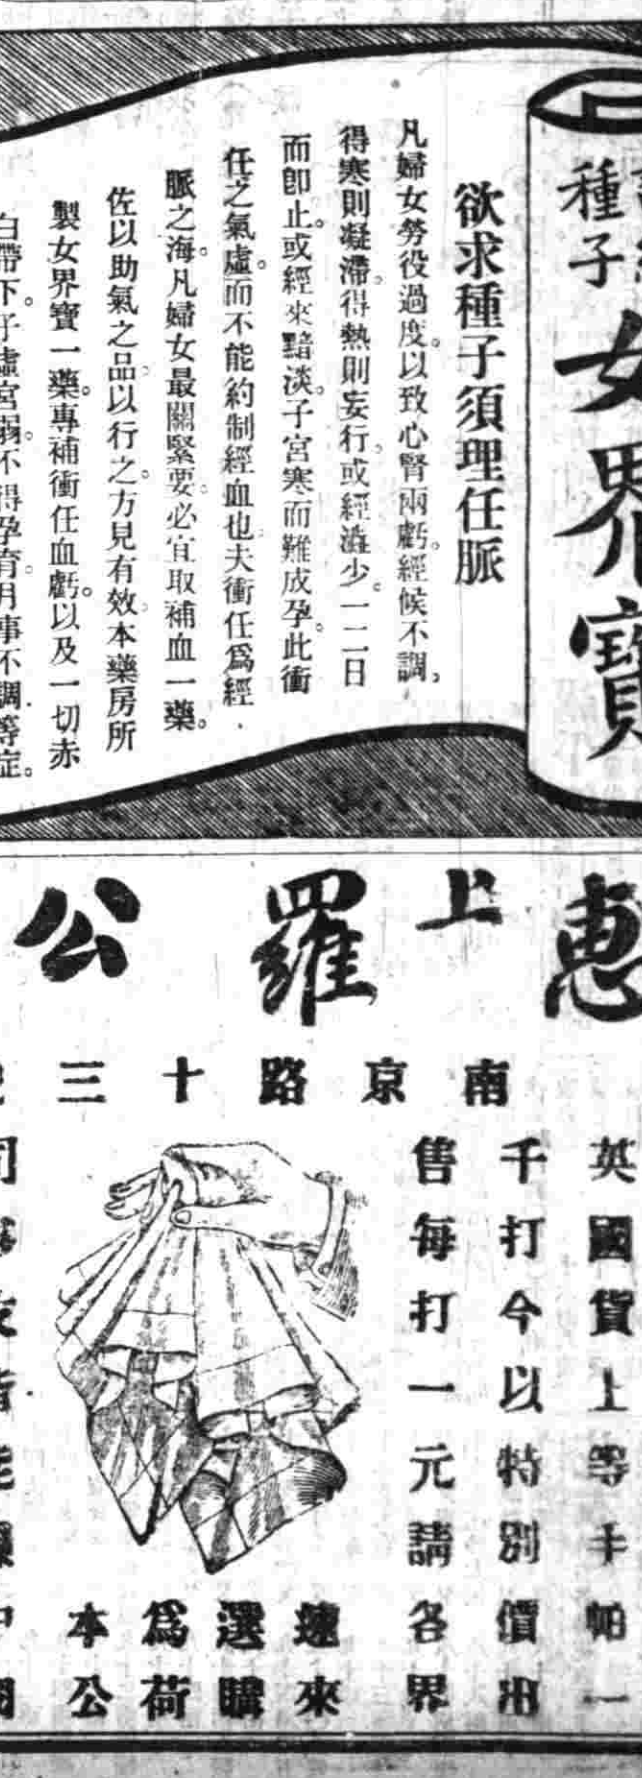 種子
女界寶
欲求種子須理任脈
凡婦女勞役過度。以致心腎兩虧。經候不調，
得寒則凝滯。得熱則妄行。或經澁少。一二日
而卽止。或經來黯淡。子宮寒而難成孕。此衝
任之氣虛。而不能約制經血也。夫衝任爲經
脈之海。凡婦女最關緊要。必宜取補血一藥。
佐以助氣之品。以行之。方見有效。本藥房所
製女界寶一藥。專補衝任血虧。以及一切赤
白帶下。子虛宮弱。不得孕育。月事不調等症。
惠
上
羅
公
南京路十三
英國貨上等手帕一
千打今以特別價出
售每打一元請各界
速來
選購
爲荷
本公